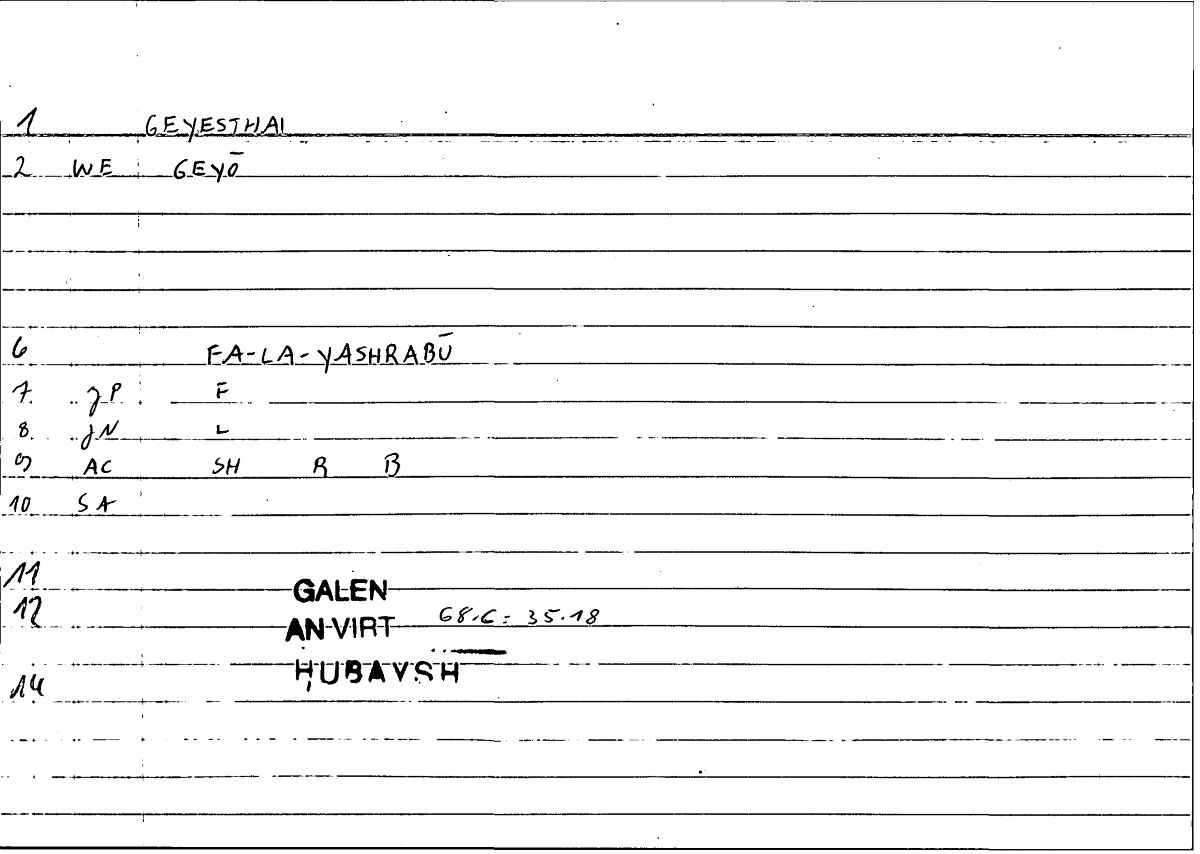 1 GEYESTHAI
2 WE GEYŌ
6 FA-LA-YASHRABŪ
7. JP F
8. JN L
9 AC SH R B
10 SA
11 GALEN
12 AN VIRT 68.C: 35.18
14 ḤUBAYSH